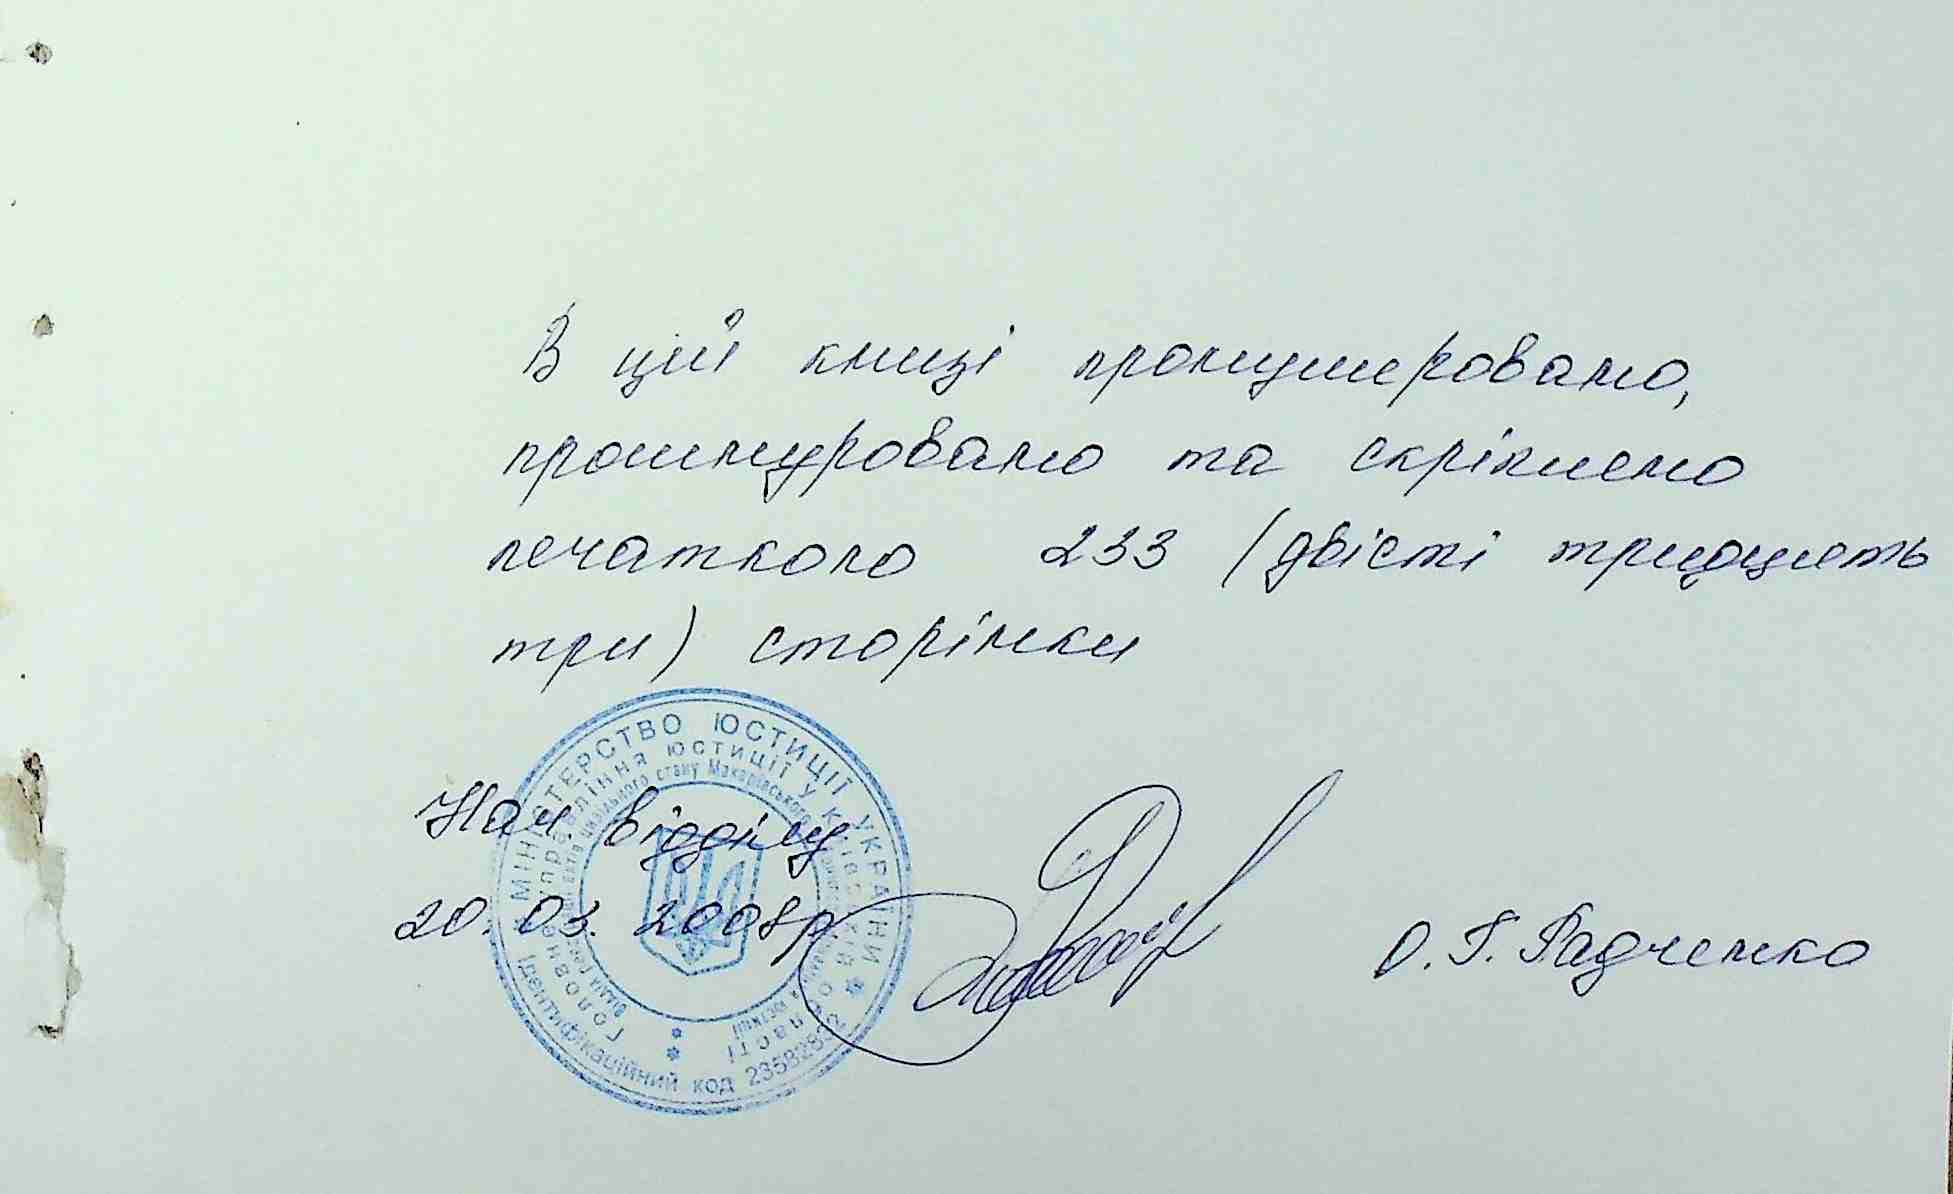 В цій книзі пронумеровано,
прошнуровано та скріплено
печаткою 233 (двісті тридцять
три) сторінки
Нач. відділу
20.03.2008р
О.Г. Радченко
МІНІСТЕРСТВО ЮСТИЦІЇ УКРАЇНИ
Ідентифікаційний код
Головне управління юстиції у Київській області
цивільного стану Макарівського